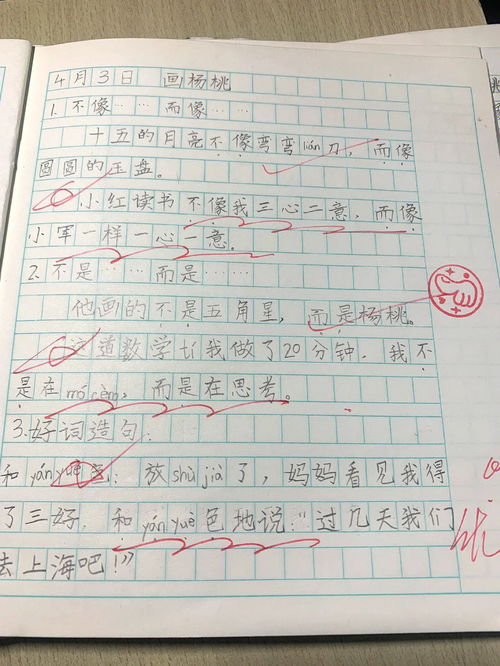 4月3日 画杨桃
1.不像……而像……
十五的月亮不像弯弯lián刀,而像
圆圆的玉盘。
小红读书不像我三心二意,而像
小军一样一心一意。
2.不是……而是……
他画的不是五角星,而是杨桃。
这道数学tí我做了20分钟,我不
是在mó cèng,而是在思考。
3.好词造句:
和yán yuè色:放shǔ jià了,妈妈看见我得
了三好,和yán yuè色地说:“过几天我们
去上海吧!”
优